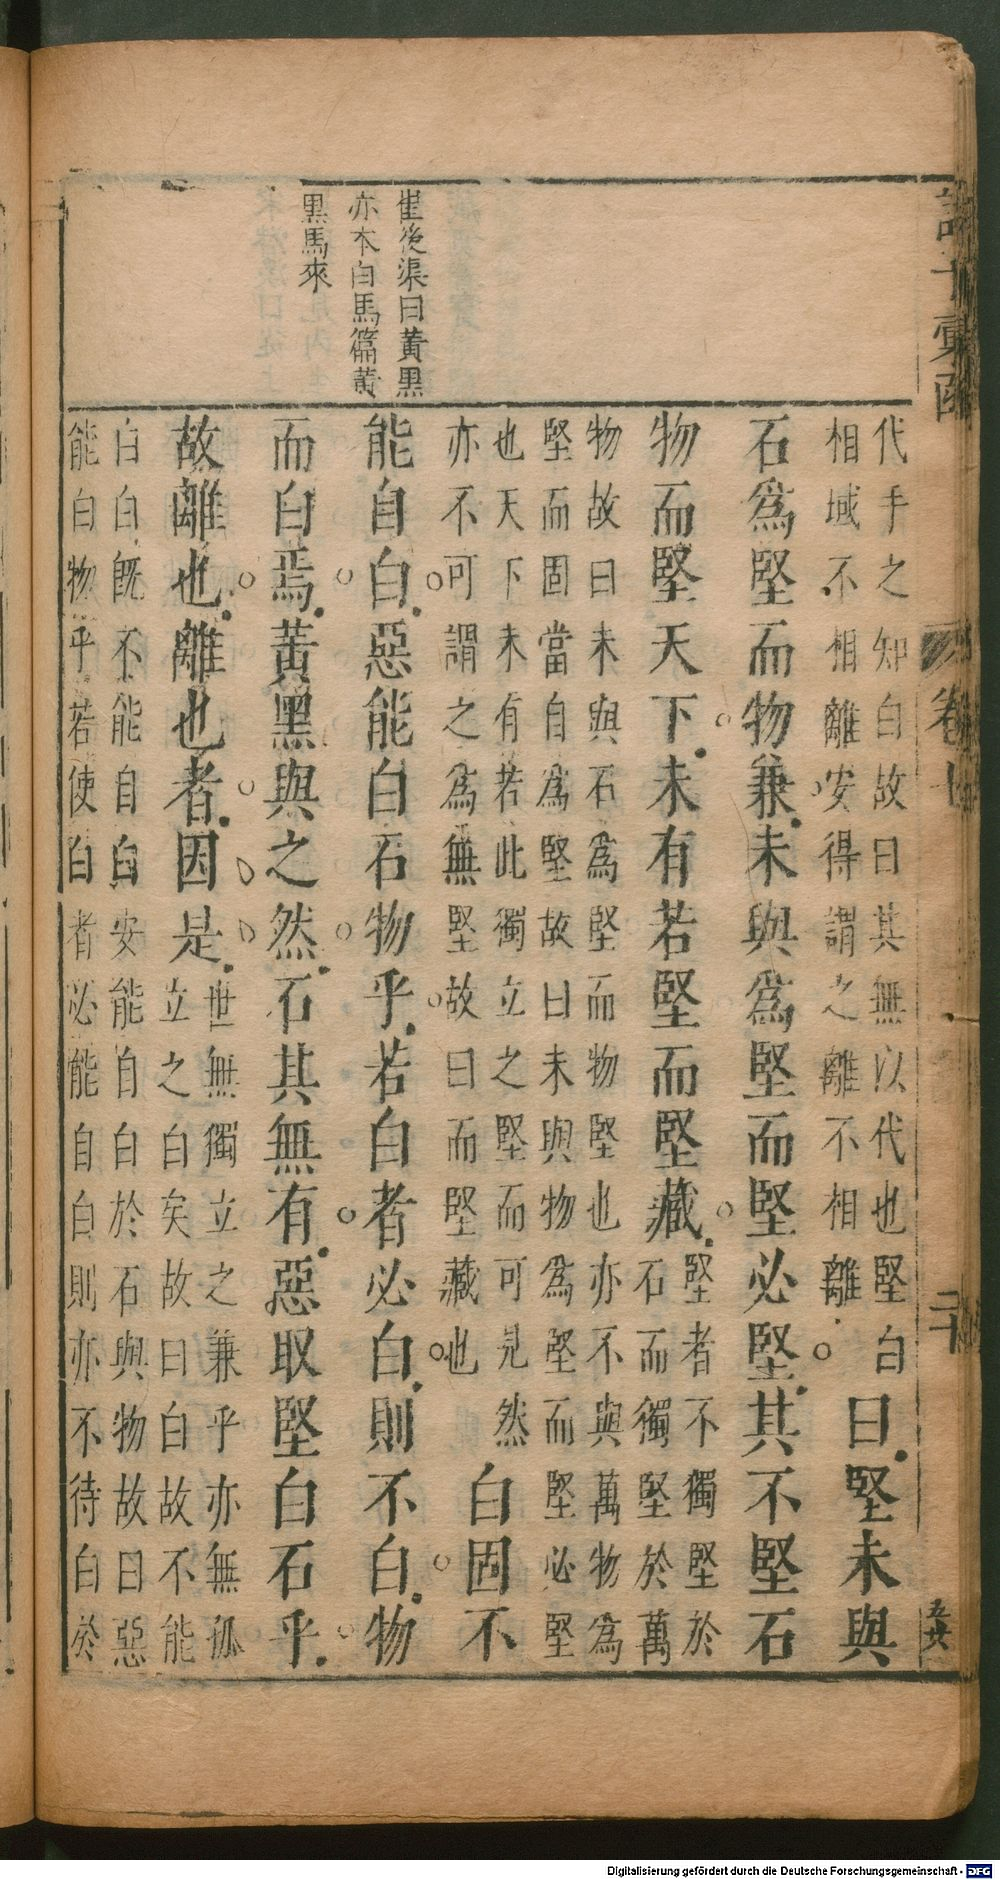 諸子彙函
卷七
二十
崔後渠曰黃黑
亦本白馬篇黃
黑馬來
代手之知白故曰其無以代也堅白
相域不相離安得謂之離不相離
曰堅未與
石爲堅而物兼未與爲堅而堅必堅其不堅石
物而堅天下未有若堅而堅藏
堅者不獨堅於
石而獨堅於萬
物故曰未與石爲堅而物堅也亦不與萬物爲
堅而固當自爲堅故曰未與物爲堅而堅必堅
也天下未有若此獨立之堅而可見然
亦不可謂之爲無堅故曰而堅藏也
白固不
能自白惡能白石物乎若白者必白則不白物
而白焉黃黑與之然石其無有惡取堅白石乎
故離也離也者因是
世無獨立之兼乎亦無孤
立之白矣故曰白故不能
白白旣不能自白安能自白於石與物故曰惡
能白物乎若使白者必能自白則亦不待白於
Digitalisierung gefördert durch die Deutsche Forschungsgemeinschaft - DFG